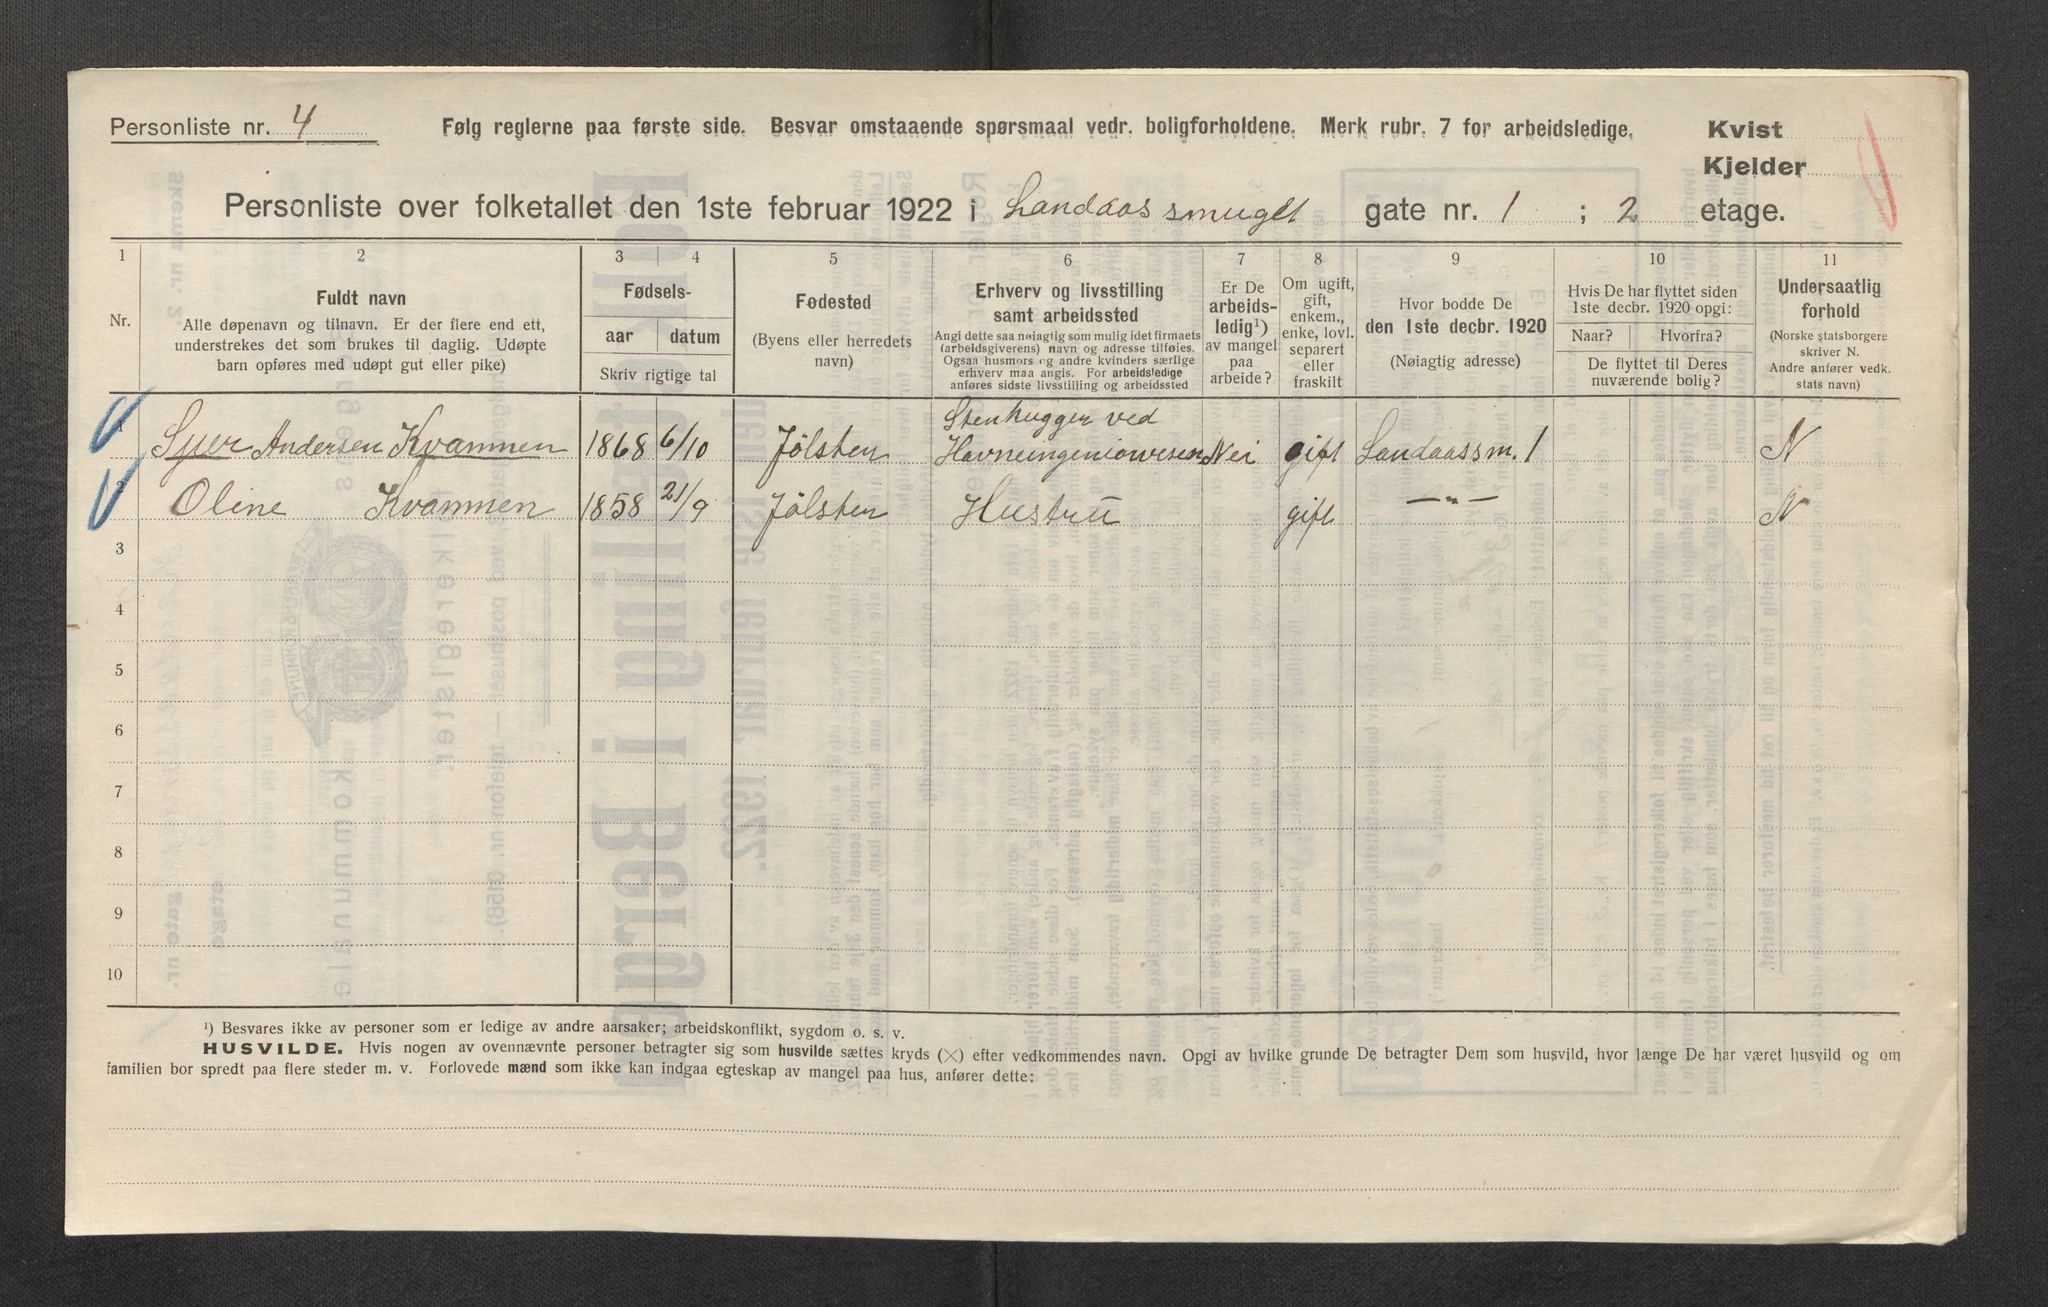 Personliste nr. 4 Følg reglerne paa første side. Besvar omstaaende spørsmaal vedr. boligforholdene. Merk rubr. 7 for arbeidsledige. Kvist
Kjelder
Personliste over folketallet den 1ste februar 1922 i Landaassmuget gate nr. 1 ; 2 etage.
1 2 3 4 5 6 7 8 9 10 11
Nr.
Fuldt navn
Alle døpenavn og tilnavn. Er der flere end ett,
understrekes det som brukes til daglig. Udøpte
barn opføres med udøpt gut eller pike)
Fødsels-
aar datum
Skriv rigtige tal
Fødested
(Byens eller herredets
navn)
Erhverv og livsstilling
samt arbeidssted
Angi dette saa nøiagtig som mulig idet firmaets
(arbeidsgiverens) navn og adresse tilføies.
Ogsaa husmors og andre kvinders særlige
erhverv maa angis. For arbeidsledige
anføres sidste livsstilling og arbeidssted
Er De
arbeids-
ledig¹)
av mangel
paa
arbeide?
Om ugift,
gift,
enkem.,
enke, lovl.
separert
eller
fraskilt
Hvor bodde De
den 1ste decbr. 1920
(Nøiagtig adresse)
Hvis De har flyttet siden
1ste decbr. 1920 opgi:
Naar? Hvorfra?
De flyttet til Deres
nuværende bolig?
Undersaatlig
forhold
(Norske statsborgere
skriver N.
Andre anfører vedk.
stats navn)
Stenhugger ved
1 Sjur Andersen Kvammen 1868 6/10 Jølsten Havneingeniørvesen Nei gift Landaassm. 1 N
Oline Kvammen 1858 21/9 Jølsten Hustru gift —"— N
3
4
5
6
7
8
9
10
¹) Besvares ikke av personer som er ledige av andre aarsaker; arbeidskonflikt, sygdom o. s. v.
HUSVILDE. Hvis nogen av ovennævnte personer betragter sig som husvilde sættes kryds (×) efter vedkommendes navn. Opgi av hvilke grunde De betragter Dem som husvild, hvor længe De har været husvild og om
familien bor spredt paa flere steder m. v. Forlovede mænd som ikke kan indgaa egteskap av mangel paa hus, anfører dette: